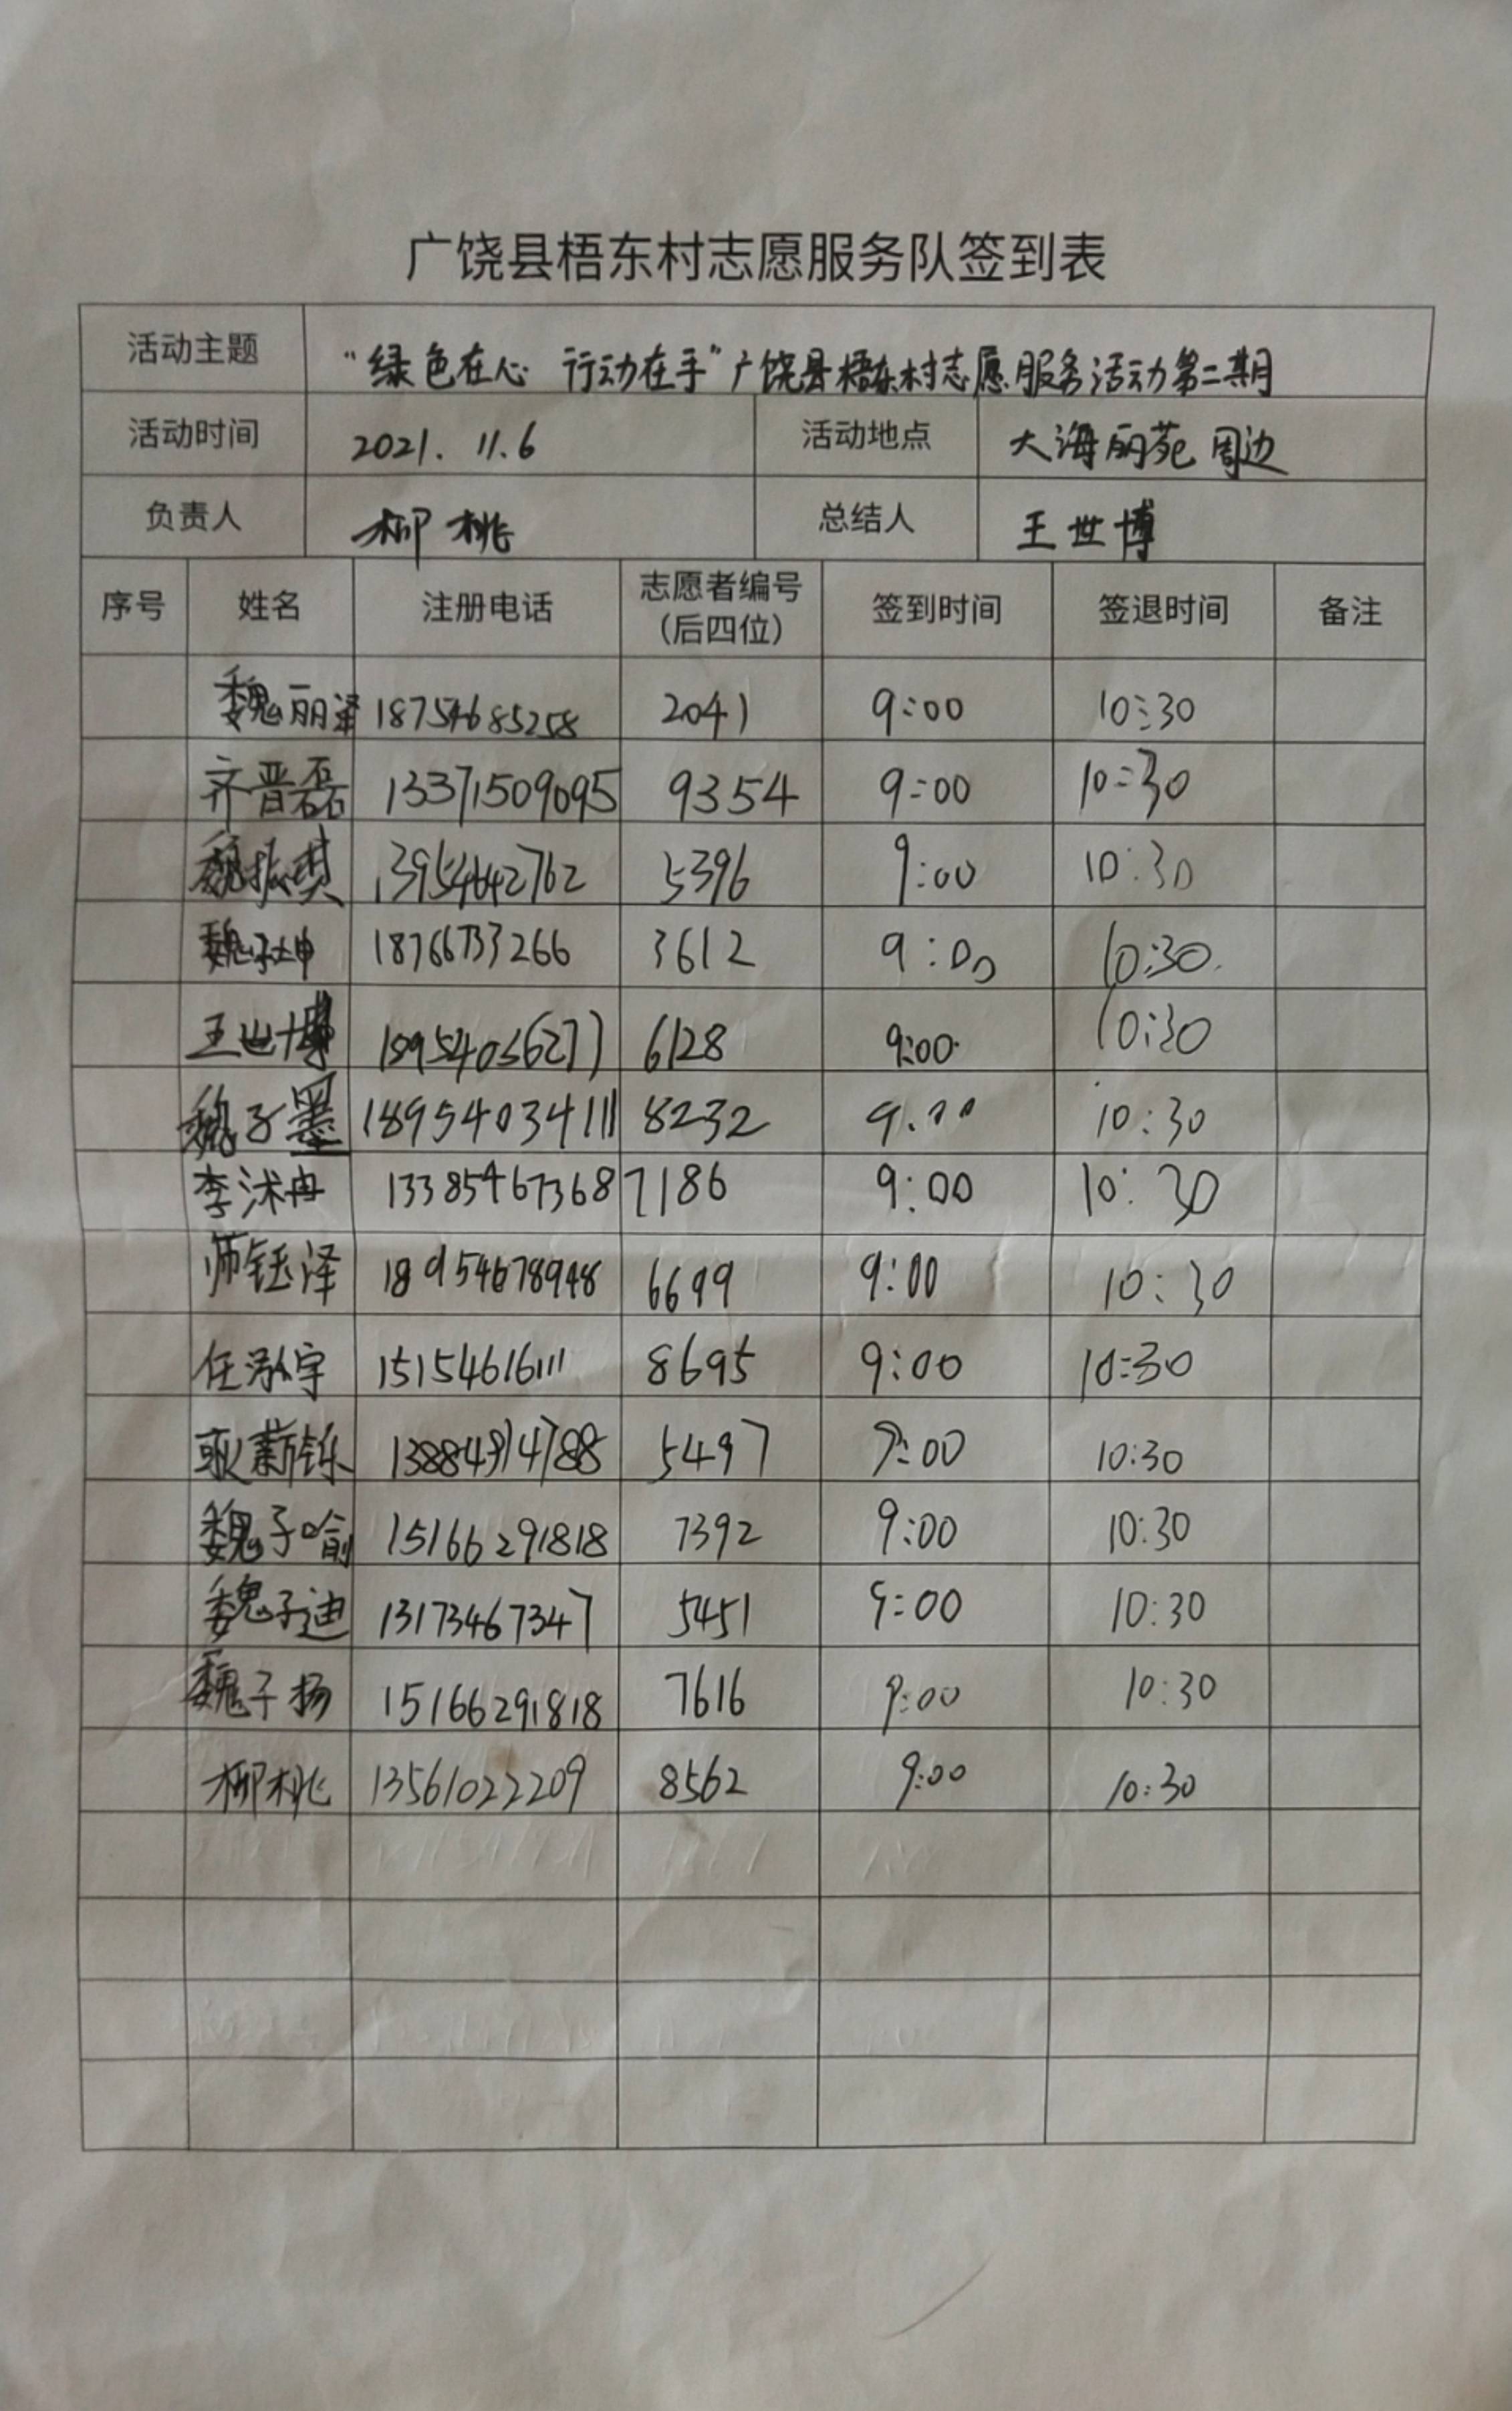 广饶县梧东村志愿服务队签到表
活动主题 “绿色在心 行动在手”广饶县梧东村志愿服务活动第二期
活动时间 2021.11.6 活动地点 大海丽苑周边
负责人 柳桃 总结人 王世博
序号 姓名 注册电话 志愿者编号(后四位) 签到时间 签退时间 备注
魏丽泽 18754685258 2041 9:00 10:30
齐晋磊 13371509095 9354 9:00 10:30
魏振琪 13954642762 5396 9:00 10:30
魏子坤 18766733266 3612 9:00 10:30
王世博 6128 9:00 10:30
魏子墨 18954034111 8232 10:30
李沭冉 13385467368 7186 9:00 10:30
师钰泽 18954678948 6699 9:00 10:30
任泓宇 15154616111 8695 9:00 10:30
耿薪铄 5497 9:00 10:30
魏子喻 15166291818 7392 9:00 10:30
魏子迪 13173467347 5451 9:00 10:30
魏子扬 15166291818 7616 9:00 10:30
柳桃 13561022209 8562 9:00 10:30